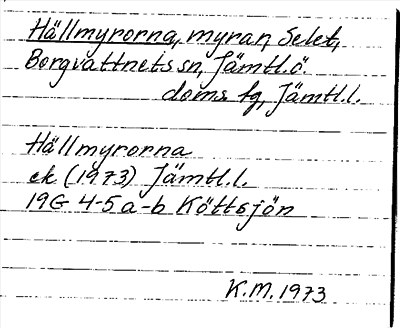 Hällmyrorna, myrar, Selet,
Borgvattnets sn, Jämtl.ö.
doms tg, Jämtl.l.
Hällmyrorna
ek (1973) Jämtl.l.
19G 4-5 a-b Köttsjön
K.M. 1973